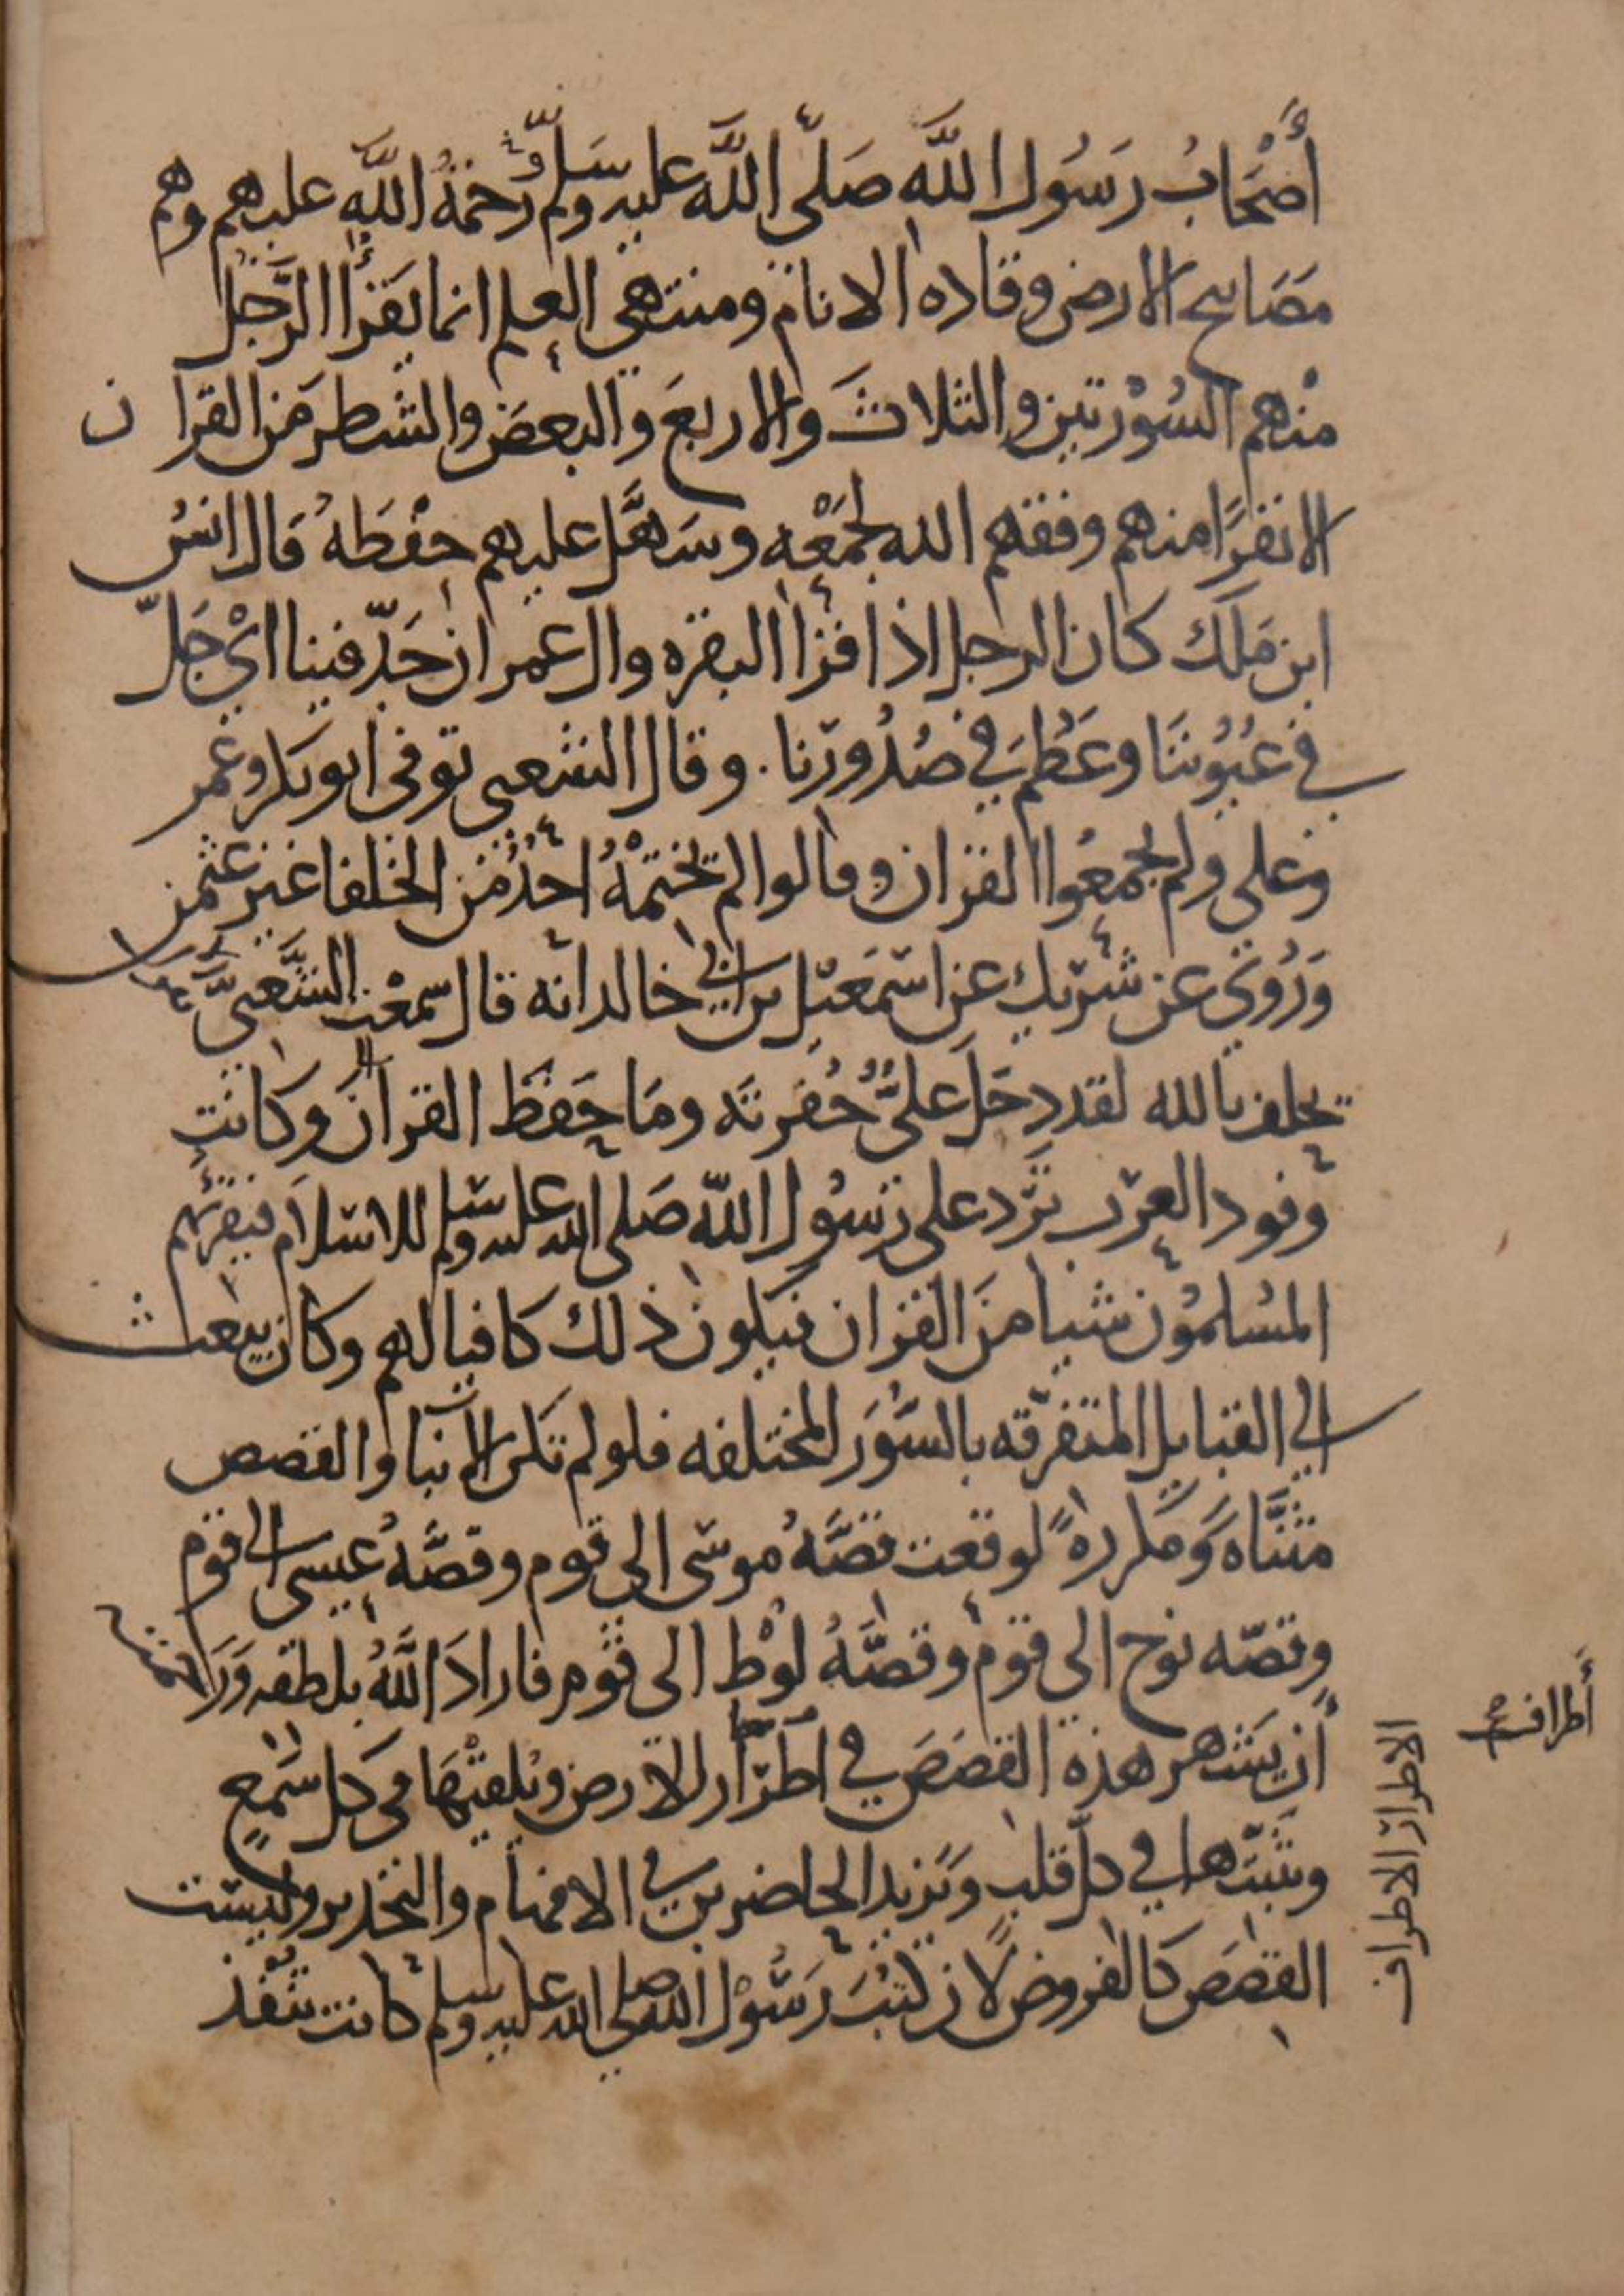 أَصْحَابُ رَسُول اللَّه صَلّى اللَّه عليه وسَلّم رَحْمَةُ اللَّهِ عليهم وهم
مَصَابيح الارض وقاده الانام ومنتهى العلم انما يَقرَأُ الرَّجُل
منْهم السُوْرتين والثلاثَ والاربعَ والبعضَ والشطرَ مَن القران
الا نفرًا منهم وفقهم الله لجَمْعِه وسَهَّل عليهم حفْظَهُ قَال انسُ
ابن مَلك كان الرجل اذا قرا البقره وال عمران جَدّ فينا ايْ جَلّ
في عُيُوْننَا وعَظُمَ في صُدُورنا . وقال الشعبى توفى ابو بكر وعُمر
وعلى ولم يجمَعُوا القران وقالوا لم يختمْهُ احَدٌ من الخلفا غير عثمن
وَرُوى عن شريك عن اسمَعيْل بن ابي خالد انه قال سمعْت الشَّعبىَّ
يحلف بالله لقد دخَل علىٌّ حُفرتَه ومَا حَفظَ القرآنَ وكانت
وفود العرب تَرد على رسُول اللّه صَلى الله عليه وسلم للاسلام فيقرئهم
المُسلمُون شيا منَ القران فيكون ذلك كافيا لهم وكان يبعث
الي القبايل المتفرّقه بالسُّوَر المختلفه فلو لم تكن الانبا والقصص
مثنَّاه وَمكررهً لوقعت قصَّهُ موسى الى قوم وقصَّهُ عيسى الى قوم
وقصّه نوح الى قوم وقصَّهُ لوْط الى قوْم فارادَ اللَّهُ بلطفه وَرَحمته
أن يشهر هذه القصَصَ في اطرَار الارض ويُلقيْهَا فى كل سَمْعٍ
ويثبّتها في كلّ قلبٍ ويَزيد الحاضرين في الافهام والتحذير وليست
القصَصَ كالفروض لان كتبَ رَسُوْل الله صلى الله عليه وسلم كانت تَنْفُذ
أطراف
الاطرار الاطراف